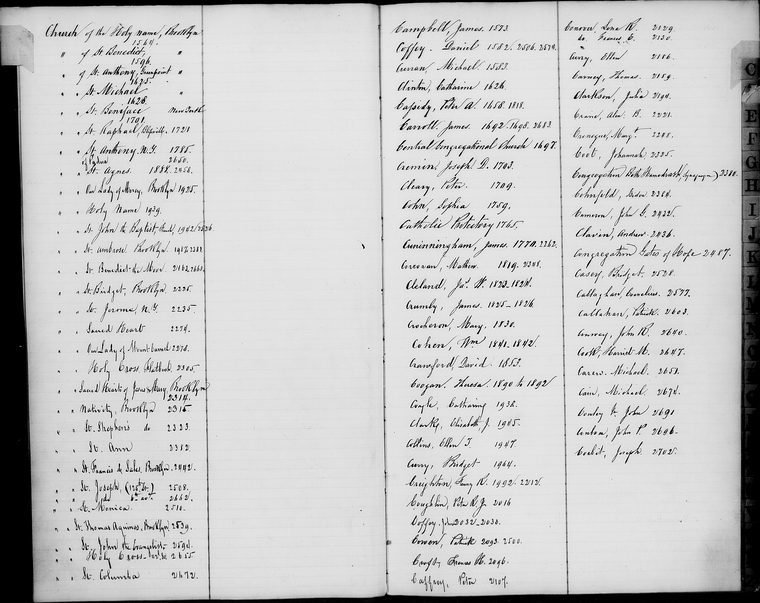 Church of the Holy name, Brooklyn
1564.
" of St. Benedict, "
1596.
" of St. Anthony, Greenpoint "
1625.
" " St. Michael "
1628.
" " St. Boniface New York
1701.
" " St. Raphael, 1721
" " St. Anthony, N.Y. 1785.
of Padua 2650.
" " St. Agnes. 1888. 2456.
" " Our Lady of Mercy, Brooklyn 1925.
" " Holy Name 1939.
" " St. John the Baptist 1962
" " St. Ambrose, Brooklyn
" " St. Benedict the Moor
" " St. Bridget, Brooklyn 2225.
" " St. Jerome, N.Y. 2235
" " Sacred Heart 2274.
" " Our Lady of Mount Carmel 2278.
" " Holy Cross, Flatbush 2305
" " Sacred Hearts of Jesus & Mary, Brooklyn
2314.
" " Nativity, Brooklyn 2316
" " St. Stephen's do 2323.
" " St. Ann 2382.
" " St. Francis de Sales, Brooklyn 2442.
" " St. Joseph, (125th St.) 2508.
2662.
" " St. Monica 2510.
" " St. Thomas Aquinas, Brooklyn, 2539.
" " St. John the Evangelist 2594.
" " Holy Cross 2655
" " St. Columba 2672.
Campbell, James. 1573.
Coffey. Daniel 1582. 2506. 2574.
Curran, Michael 1583.
Clinton, Catharine 1626.
Cassidy, Peter A. 1658. 1818.
Carroll, James. 1692. 1698. 2683
Central Congregational Church 1697.
Cremin, Joseph D. 1703.
Cleary, Peter. 1709.
Cohn, Sophia 1759.
Catholic Protectory 1765.
Cunningham, James. 1770. 2262.
Corcoran, Mathew. 1819. 2328.
Cleland, Jas. W. 1823. 1824.
Crumby, James. 1825 - 1826
Crocheron, Mary. 1830.
Cohen, Wm 1841. 1842.
Crawford, David. 1853.
Coogan, Theresa 1890 to 1892
Coyle, Catharine 1938.
Clarke, Elizabeth J. 1945.
Collins, Ellen T. 1947.
Curry, Bridget 1964.
Creighton, Fanny R. 1992. 2212.
Coughlin, Peter R. Jr 2016
Coffey, John 2032-2038.
Cowen, Patrick 2093. 2500.
Crosby 2096.
Caffrey, Peter 2107.
Conover, Lena R. 2129.
do. Frances C. 2130.
Curry, Ellen 2186.
Carney, Thomas. 2189.
Clarkson, Julia 2194.
Crane, B. 2221.
Margt. 2288.
Johannah 2325.
Congregation Beth (Synagogue) 2388.
2364.
Cameron, John G. 2422.
Clavin, Andrew. 2436.
Congregation Gates of Hope 2487.
Casey, Bridget. 2528.
Callaghan, Cornelius. 2577.
Callahan, Patrick 2603.
Conway, John R. 2640.
Cook, Harriet M. 2647.
Carew, Michael. 2651.
Cain, Michael. 2674.
Conley, John 2691
Conlon, John P. 2696.
Joseph 2702.
C
E
F
G
H
I
J
K
L
M
N